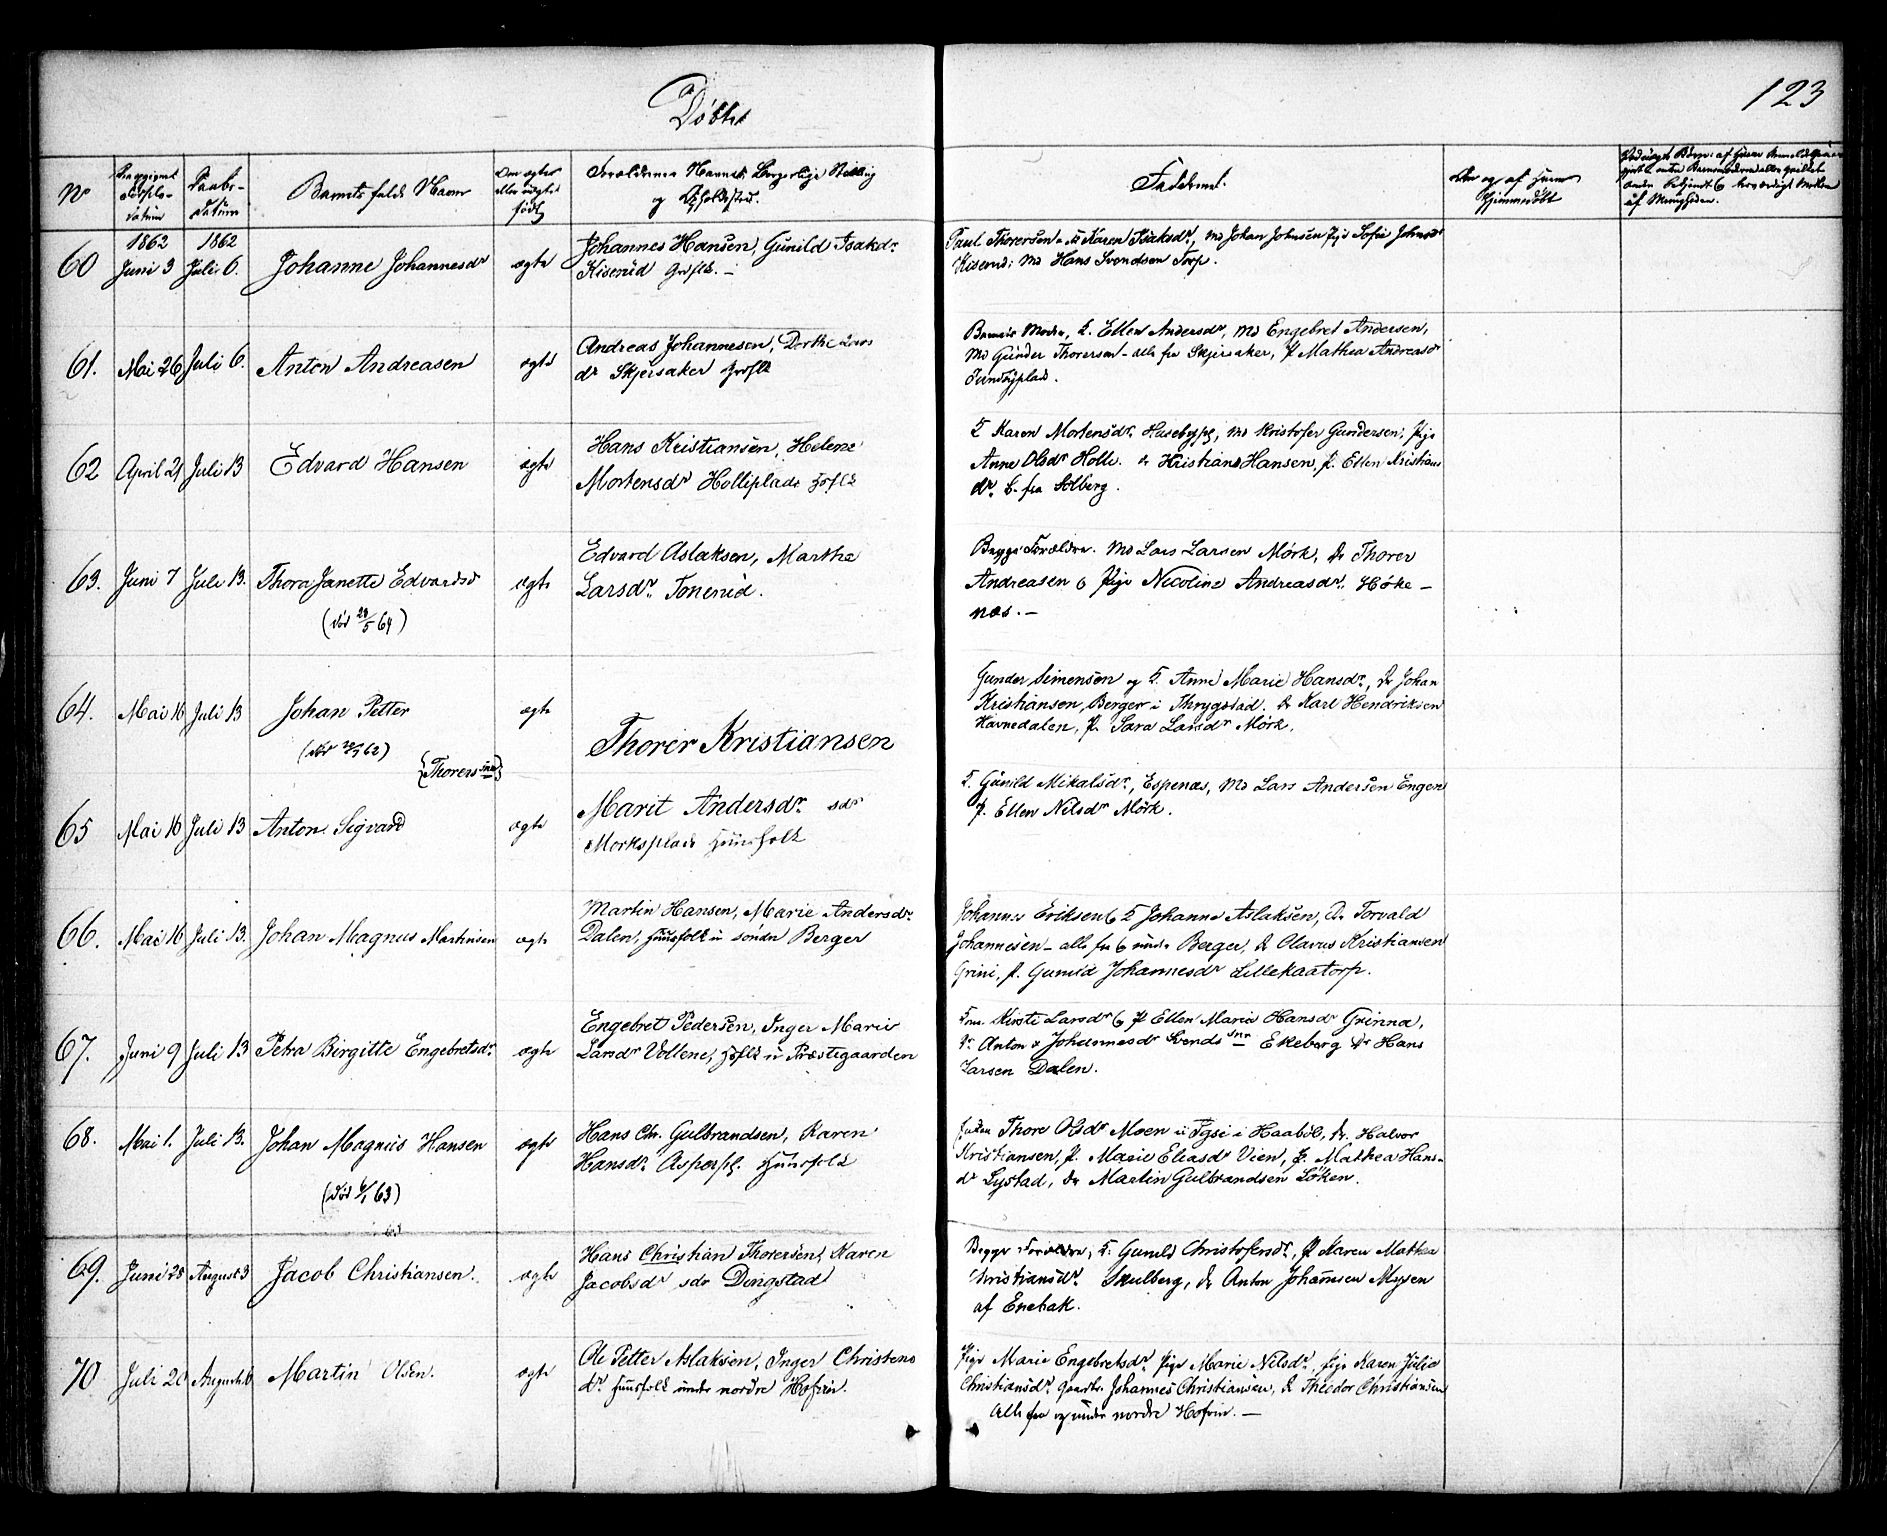 Døbte
123
No
Daabs-
datum
Barnets fulde Navn
Om ægte
eller uægte
født
Forældrenes Navne, Borgerlige Stilling
og Opholdssted.
Fadderne.
Hjemmedøbt
1862 1862
60 Juni 3 Juli 6. Johanne Johannesdr ægte
Johannes Hansen, Gunild Isaksdr
Kiserud Grdflk. —
Paul Thorersen & K Karen Isaksdr, Md Johan Johnsen Pige Sofie Johnsdr
Kiserud; Md Hans Svendsen Torp.
61. Mai 26 Juli 6. Anton Andreasen ægte
Andreas Johannesen, Dorthe Lars
dr Skjersaker Grdflk
Barnets Moder, K. Ellen Andersdr, Md Engebret Andersen,
Md Gunder Thorersen – alle fra Skjersaker, P Mathea Andreasdr
62 April 21 Juli 13 Edvard Hansen ægte
Hans Kristiansen, Helene
Mortensdr Holliplads Hsflk
K Karen Mortensdr Husebypl, Md Kristofer Gundersen, Pige
Anne Olsdr Holli. Dr Kristian Hansen, P. Ellen Kristians
dr. B. fra Solberg.
63. Juni 7 Juli 13. Thora Janette Edvardsd ægte
(død 28/5 64)
Edvard Aslaksen, Marthe
Larsdr. Tonerud.
Begge Forældre. Md Lars Larsen Mörk, Dr Thorer
Andreasen & Pige Nicoline Andreasdr. Høke–
næs. —
64. Mai 16 Juli 13 Johan Petter ægte
{Thorerssønner}
Thorer Kristiansen
Gunder Simensen og K. Anne Marie Hansdr, Dr Johan
Kristiansen, Berger i Thrygstad. Dr Karl Hendriksen
Havnedalen, P. Sara Larsdr Mörk.
65 Mai 16 Juli 13 Anton Sigvard ægte
Marit Andersdr sdr
Morksplads Huusfolk
K. Gunild Mikalsdr, Espenæs, Md Lars Andersen Engen
P. Ellen Nilsdr Mörk.
66. Mai 16 Juli 13. Johan Magnus Martinsen ægte
Martin Hansen, Marie Andersdr
Dalen, Huusfolk u söndre Berger
Johannes Eriksen & K Johanne Aslaksen, Dr Torvald
Johannesen – alle fra & under Berger, Dr Olavus Kristiansen
Grini, P. Gunild Johannesdr Lillekaatorp.
67. Juni 9 Juli 13 Petra Birgitte Engebretsdr. ægte
Engebret Pedersen, Inger Marie
Larsdr Vollene, Hsflk u Præstegaarden
Kirsti Larsdr & P Ellen Marie Hansdr Grinna,
Dr Anton & Johannes Svendssnr Ekeberg Dr Hans
Larsen Dalen.
68. Mai 1. Juli 13. Johan Magnus Hansen ægte
(død 6/1 63)
Hans Chr. Gulbrandsen, Karen
Hansdr Asperpl. Huusfolk
Thore Olsdr Moen u Tysi i Haabøl, Dr. Halvor
Kristiansen, P. Marie Eliasdr Vien, P. Mathea Hans–
dr Lystad, Dr Martin Gulbrandsen Löken.
69. Juni 28 August 3 Jacob Christiansen. ægte
Hans Christian Thorersen, Karen
Jacobsdr sdr Dingstad
Begge Forældre, K. Gunild Christofersdr, P Karen Mathea
Christiansdr. Skulberg, Dr Anton Johannsen Mysen
af Enebak.
70 Juli 20 August 6 Martin Olsen. ægte
Ole Petter Aslaksen, Inger Christens
dr. Huusfolk under nordre Hofvin.
Pige Marie Engebretsdr. Pige Marie Nilsdr, Pige Karen Julie
Christiansdr. Gaardbr. Johannes Christiansen, Dr Theodor Christiansen
Alle fra og under nordre Hofvin. —